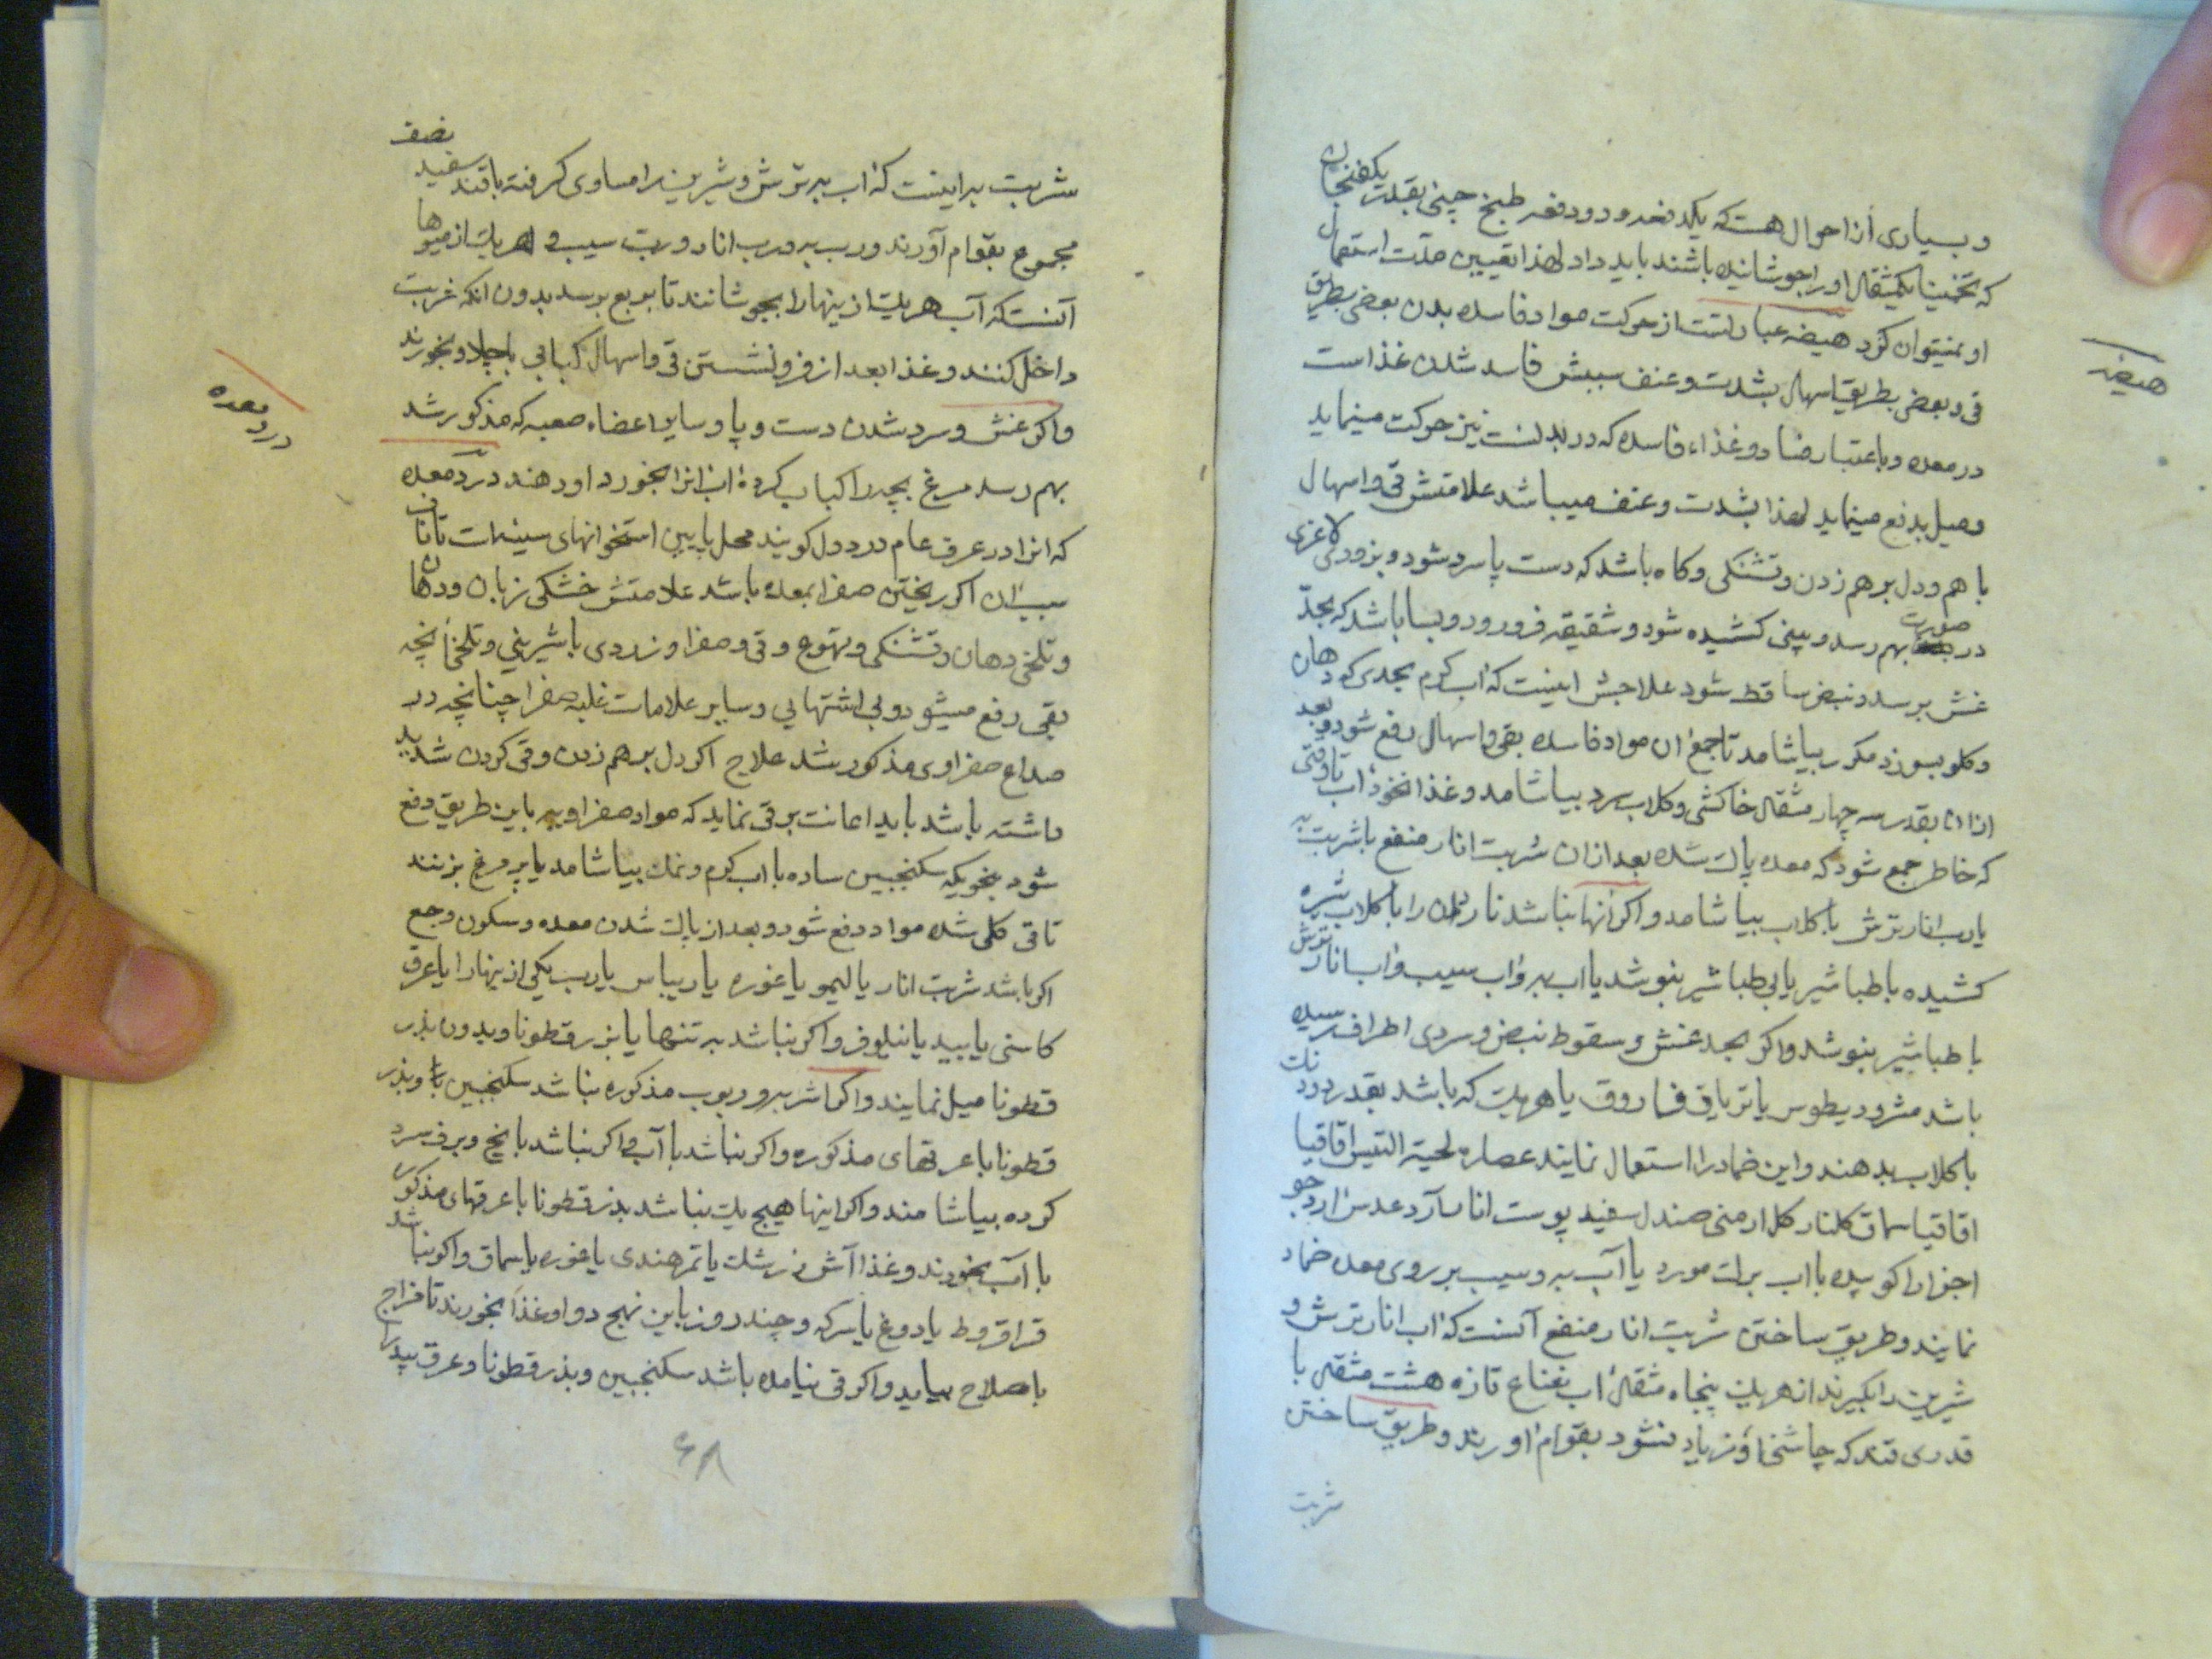 و بسیاری از احوال هست که یکدفعه و دو دفعه طبخ چینی بقدر یکفنجان
که تخمینا یکمثقال او را جوشانیده باشند باید داد لهذا تعیین مدت استعمال
او نمیتوان کرد هیضه عبارتست از حرکت مواد فاسده بدن بعضی بطریق
هیضه
قی و بعضی بطریق اسهال بشدت و عنف سببش فاسد شدن غذاست
در معده و باعتبار فساد و غذاء فاسده که در بدنست نیز حرکت مینماید
و میل بدفع مینماید لهذا بشدت و عنف میباشد علامتش قی و اسهال
با هم و دل بر هم زدن و تشنکی و کاه باشد که دست پا سرد شود و بزودی لاغری
در صورت بهم رسد و بینی کشیده شود و شقیقه فرو رود و بسا باشد که بحدّ
غش برسد و نبض ساقط شود علاجش اینست که اب کرم بحدی که دهان
و کلو بسوزد مکرر بیاشامد تا جمع ان مواد فاسده بقی و اسهال رفع شود و بعد
از ان بقدر سه چهار مثقال خاکشی و کلاب سرد بیاشامد و غذا نخورد اب تا وقتی
که خاطر جمع شود که معده پاک شده بعد از ان شربت انار منفع با شربت به
یا رب انار ترش با کلاب بیاشامد و اکر انها نباشد ناردان را با کلاب شیره
کشیده با طباشیر یا بی طباشیر بنوشد یا اب به و اب سیب و اب انار ترش
با طباشیر بنوشد و اکر بحد غش و سقوط نبض و سردی اطراف رسیده
باشد مثرودیطوس یا تریاق فاروق یا هر یک که باشد بقدر دو دنک
با کلاب بدهند و این ضماد را استعمال نمایند عصاره لحیة التیس اقاقیا
اقاقیا سماق کلنار کل ارمنی صندل سفید پوست انار آرد عدس آرد جو
اجزا را کوبیده با اب برک مورد یا آب به و سیب بر روی معده ضماد
نمایند و طریق ساختن شربت انار منفع آنست که اب انار ترش و
شیرین را بکیرند از هر یک پنجاه مثقال اب نعناع تازه هشت مثقال با
قدری قند که چاشنی او زیاد نشود بقوام اورند و طریق ساختن
شربت
نصف
شربت به اینست که اب به ترش و شیرین را مساوی کرفته با قند سفید
مجموع بقوام آورند و رب به و رب انار و رب سیب و هر یک از میوها
آنست که آب هر یک از ینها را بجوشانند تا بربع برسد بدون انکه شربت
داخل کنند و غذا بعد از فرو نشستن قی و اسهال کبابی با چلاو بخورند
و اکر غش و سرد شدن دست و پا و سایر اعضاء صعبه که مذکور شد
درد معده
بهم رسد مرغ بچه را کباب کرده اب انرا بخورد او دهند درد معده
که انرا در عرف عام درد دل کویند محل پایین استخوانهای سینه است تا ناف
سبب ان اکر ریختن صفرا بمعده باشد علامتش خشکی زبان و دهان
و تلخی دهان و تشنکی و تهوع و قی و صفرا و زردی با شیرینی و تلخی انچه
بقی رفع میشود و بی اشتهایی و سایر علامات غلبه صفرا چنانچه در
صداع صفراوی مذکور شد علاج اکر دل بر هم زدن و قی کردن شدید
داشته باشد باید اعانت بر قی نماید که مواد صفراویه باین طریق دفع
شود بنحویکه سکنجبین ساده با اب کرم و نمک بیاشامد یا پر مرغ بزنند
تا قی کلی شده مواد دفع شود و بعد از پاک شدن معده و سکون وجع
اکر باشد شربت انار یا لیمو یا غوره یا ریباس یا رب یکی از ینها را یا عرق
کاسنی یا بید یا نیلوفر و اکر نباشد به تنها یا بزر قطونا و بدون بذر
قطونا میل نمایند و اکر اشربه و ربوب مذکوره نباشد سکنجبین با و بذر
قطونا با عرقهای مذکوره و اکر نباشد با آب و اکر نباشد با یخ و برف سرد
کرده بیاشامند و اکر اینها هیچ یک نباشد بذر قطونا با عرقهای مذکور
با آب بخورند و غذا آش زرشک یا تمر هندی یا غوره یا سماق و اکر نباشد
قراقروط یا دوغ یا سرکه و چند روز باین نهج دوا و غذا بخورند تا مزاج
باصلاح بیاید و اکر قی نیامده باشد سکنجبین و بذر قطونا و عرق بید را
۶۸